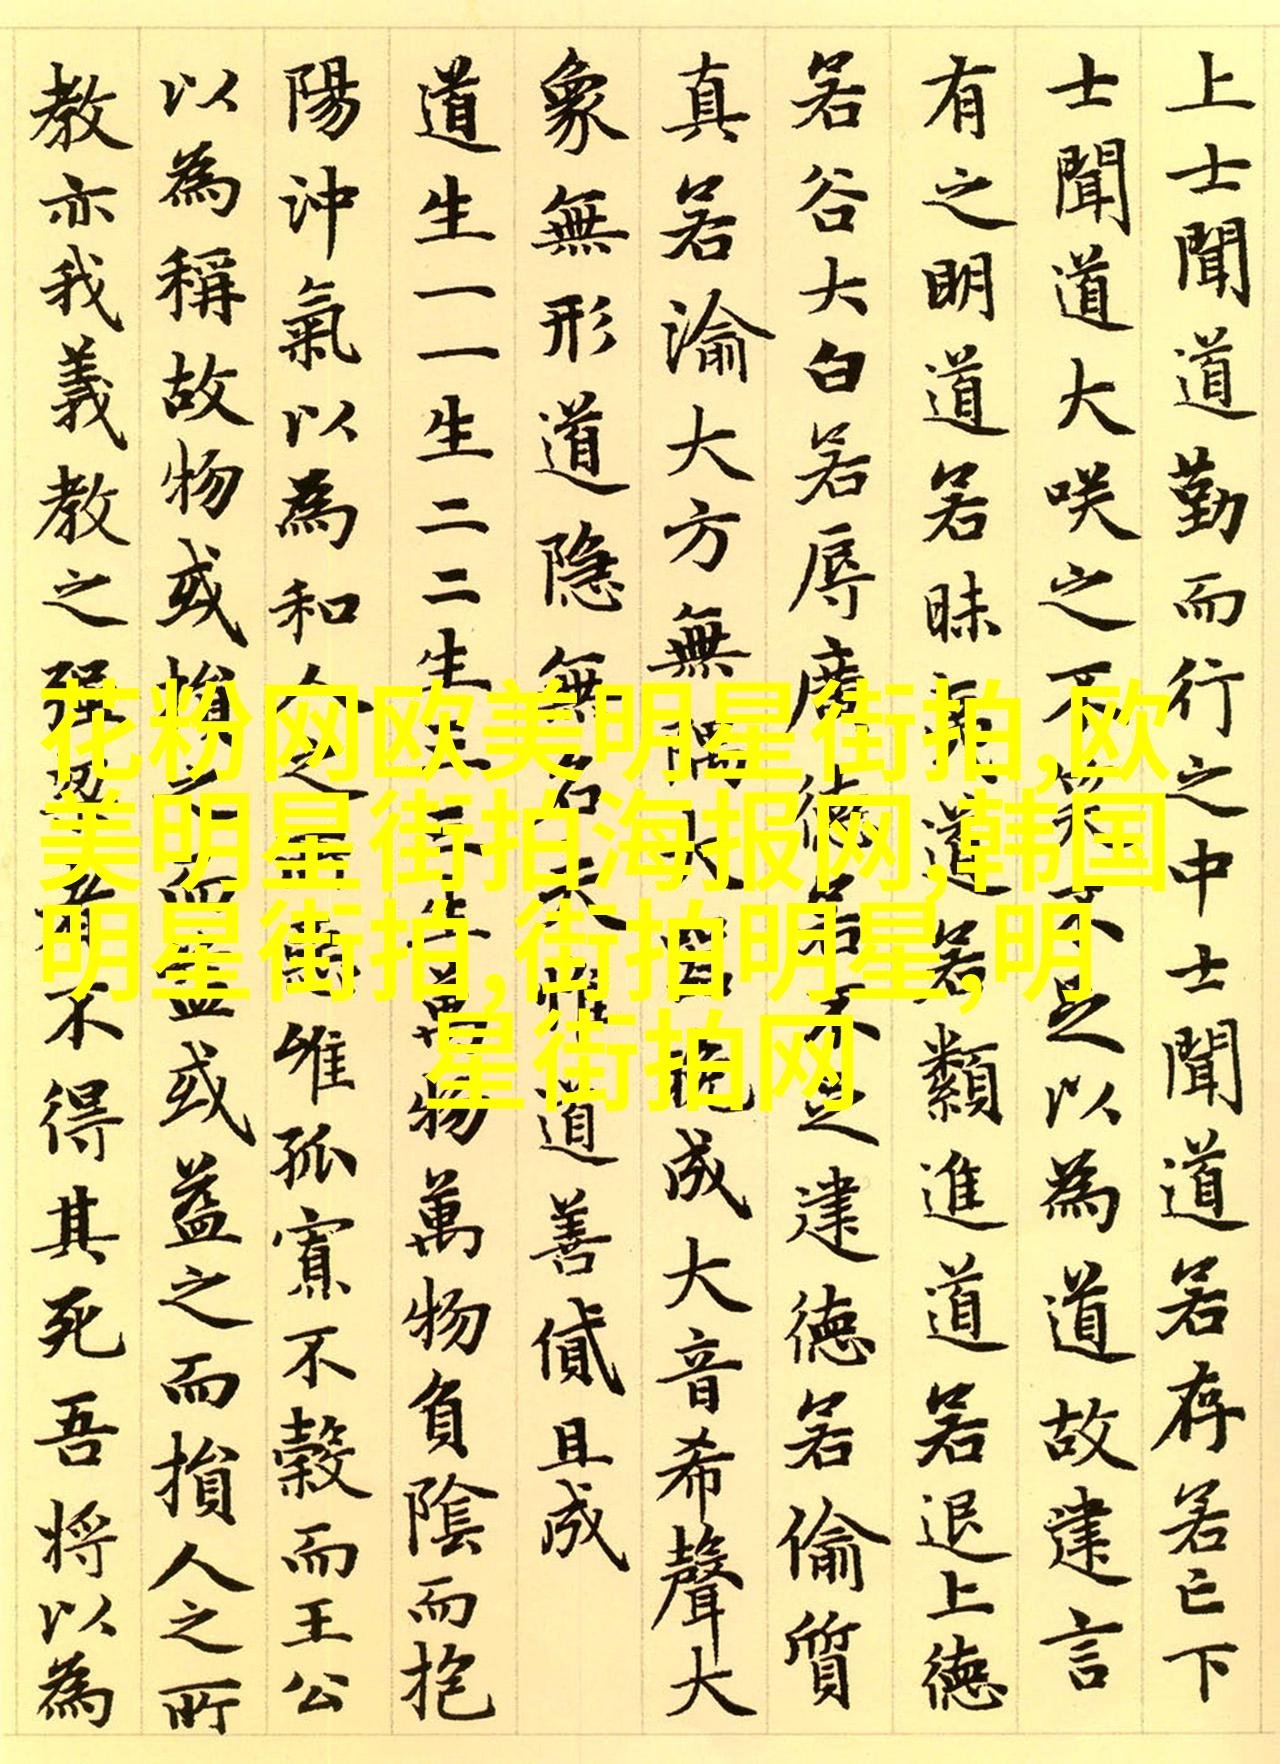 上士聞道勤而行之中士聞道若存若亡下
士聞道大咲之不笑不足以為道故建言
有之明道若昧夷道若類進道若退上德
若谷大白若辱廣德若不足建德若偷質
真若渝大方無隅大器晚成大音希聲大
象無形道隐無名夫惟道善貸且成
道生一一生二二生三三生萬物萬物負陰而抱
陽沖氣以為和人之惡唯孤寡不穀而王公
以為稱故物或損之而益或益之而損人之所
教亦我義教之强梁者不得其死吾将以為
花粉网欧美明星街拍,欧
美明星街拍海报网,韩国
明星街拍,街拍明星,明
星街拍网